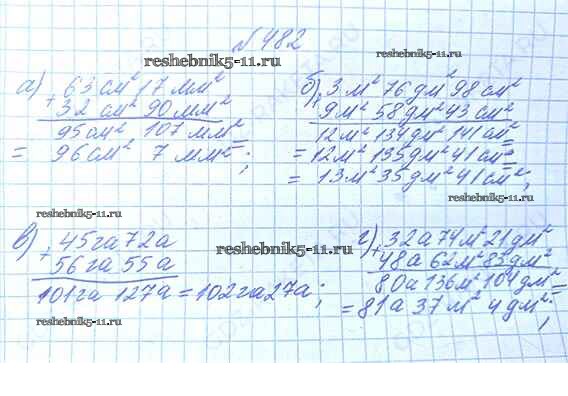 № 482
reshebnik5-11.ru
а) 63 см² 17 мм²
+ 32 см² 90 мм²
95 см² 107 мм² =
= 96 см² 7 мм²;
reshebnik5-11.ru
б) 3 м² 76 дм² 98 см²
+ 9 м² 58 дм² 43 см²
12 м² 134 дм² 141 см² =
= 12 м² 135 дм² 41 см² =
= 13 м² 35 дм² 41 см²;
reshebnik5-11.ru
reshebnik5-11.ru
в) 45 га 72 а
+ 56 га 55 а
101 га 127 а = 102 га 27 а;
reshebnik5-11.ru
reshebnik5-11.ru
г) 32 а 74 м² 21 дм²
+ 48 а 62 м² 83 дм²
80 а 136 м² 104 дм² =
= 81 а 37 м² 4 дм²;